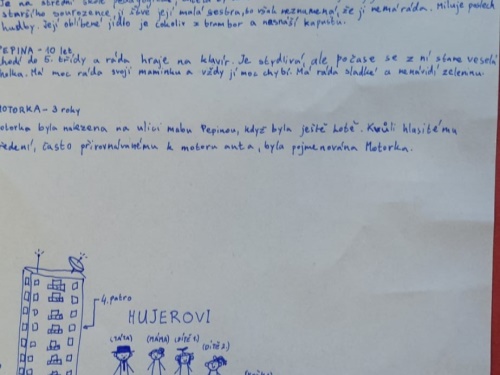 Je na střední škole pedagogické,
staršího sourozence, jí štve její malá sestra, to však neznamená, že ji nemá ráda. Miluje poslech
hudby. Její oblíbené jídlo je cokoliv z brambor a nesnáší kapustu.
PEPINA - 10 let
chodí do 5. třídy a ráda hraje na klavír. Je stydlivá, ale počase se z ní stane veselá
holka. Má moc ráda svoji maminku a vždy jí moc chybí. Má ráda sladké a nenávidí zeleninu.
MOTORKA - 3 roky
Motorka byla nalezena na ulici malou Pepinou, když byla ještě kotě. Kvůli hlasitému
předení, často přirovnávanému k motoru auta, byla pojmenována Motorka.
4. patro
HUJEROVI
(TÁTA) (MÁMA) (DÍTĚ 1) (DÍTĚ 2)